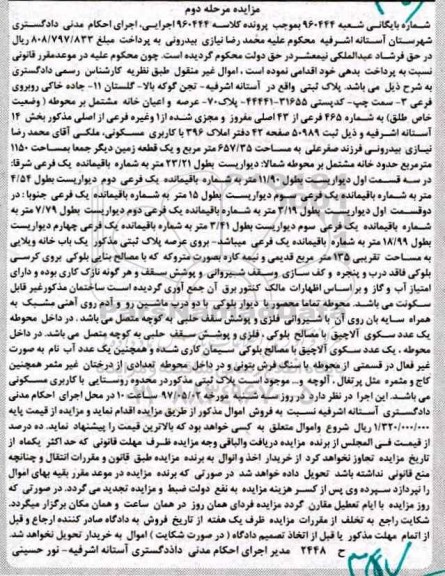 مزایده مرحله دوم
شماره بایگانی شعبه ۹۶۰۴۴۴ بموجب پرونده کلاسه ۹۶۰۴۴۴ اجرایی، اجرای احکام مدنی دادگستری
شهرستان آستانه اشرفیه محکوم علیه محمد رضا نیازی بیدرونی به پرداخت مبلغ ۸۰۸/۷۹۷/۸۳۳ ریال
در حق فرشاد عبدالملکی نیمعشر در حق دولت محکوم گردیده است. چون محکوم علیه در موعدمقرر قانونی
نسبت به پرداخت بدهی خود اقدامی نموده است ، اموال غیر منقول طبق نظریه کارشناس رسمی دادگستری
به شرح ذیل می باشد. پلاک ثبتی واقع در آستانه اشرفیه- تجن گوکه بالا- گلستان ۱۱- جاده خاکی روبروی
فرعی ۳- سمت چپ- کدپستی ۳۱۶۵۵-۴۴۴۴۱- پلاک۷۰- عرصه و اعیان خانه مشتمل بر محوطه (وضعیت
خاص طلق) به شماره ۴۶۵ فرعی از ۴۳ اصلی مفروز و مجزی شده از۱ وغیره فرعی از اصلی مذکور بخش ۱۴
آستانه اشرفیه و ذیل ثبت ۵۰۹۸۹ صفحه ۴۲ دفتر املاک ۳۹۶ با کاربری مسکونی، ملکی آقای محمد رضا
نیازی بیدرونی فرزند صفرعلی به مساحت ۶۵۷/۳۵ متر مربع و یک قطعه زمین دیگر جمعا بمساحت ۱۱۵۰
مترمربع حدود خانه مشتمل بر محوطه شمالا: دیواریست بطول ۲۳/۲۱ متر به شماره باقیمانده یک فرعی شرقا:
در سه قسمت اول دیواریست بطول ۱۱/۹۰ متر به شماره باقیمانده یک فرعی دوم دیواریست بطول ۴/۵۴
متر به شماره باقیمانده یک فرعی سوم دیواریست بطول ۱۵ متر به شماره باقیمانده یک فرعی جنوبا: در
دوقسمت اول دیواریست بطول ۳/۱۹ متر به شماره باقیمانده یک فرعی دوم دیواریست بطول ۷/۷۹ متر به
شماره باقیمانده یک فرعی سوم دیواریست بطول ۳/۴۱ متر به شماره باقیمانده یک فرعی چهارم دیواریست
بطول ۱۸/۹۹ متر به شماره باقیمانده یک فرعی میباشد- بروی عرصه پلاک ثبتی مذکور یک باب خانه ویلایی
به مساحت تقریبی ۱۳۵ متر مربع قدیمی و نیمه کاره بصورت متروکه که با مصالح بنایی بلوکی بروی کرسی
بلوکی فاقد درب و پنجره و کف سازی وسقف شیروانی و پوشش سقف و هر گونه نازک کاری بوده و دارای
امتیاز آب و گاز و بر اساس اظهارات مالک کنتور برق آن جمع آوری گردیده است ساختمان مذکور غیر قابل
سکونت می باشد. محوطه تماما محصور با دیوار بلوکی با دو درب ماشین رو و آدم روی آهنی مشبک به
همراه سایه بان روی آن با شیروانی فلزی و پوشش سقف حلبی به کوچه متصل می باشد. در داخل محوطه
یک عدد سکوی آلاچیق با مصالح بلوکی، فلزی و پوشش سقف حلبی به کوچه متصل می باشد. در داخل
محوطه ، یک عدد سکوی آلاچیق با مصالح بلوکی سیمان کاری شده و همچنین یک عدد آب نام به صورت
غیر فعال در قسمتی از محوطه با سنگ فرش بتونی و در داخل محوطه تعدادی از درختان غیر مثمر همچنین
کاج و مثمره مثل پرتغال ، آلوچه و... موجود است پلاک ثبتی مذکور در محدوه روستایی با کاربری مسکونی
می باشد. این اجرا در نظر دارد در روز سه شنبه مورخه ۹۷/۵/۳۰ ساعت ۱۰ در محل اجرای احکام مدنی
دادگستری آستانه اشرفیه نسبت به فروش اموال مذکور از طریق مزایده اقدام نماید و مزایده از قیمت پایه
۱/۳۲۰/۰۰۰/۰۰۰ ریال شروع واموال متعلق به کسی خواهد بود که بالاترین قیمت را پیشنهاد نماید. ده درصد
از قیمت فی المجلس از برنده مزایده دریافت والباقی وجه مزایده ظرف مهلت قانونی که حد اکثر یکماه از
تاریخ مزایده تجاوز نخواهد کرد از خریدار اخذ و انوال به برنده مزایده طبق قانون و مقررات انتقال و چنانچه
منع قانونی نداشته باشد تحویل داده خواهد شد در صورتی که برنده مزایده در موعد مقرر بقیه بهای اموال
را نپردازد سپرده وی پس از کسر هزینه مزایده به نفع دولت ضبط و مزایده تجدید می گردد. در صورتی که
روز مزایده با ایام تعطیل مقارن گردد مزایده فردای همان روز در همان ساعت و همان مکان برگزار میگردد.
شکایت راجع به تخلف از مقررات مزایده ظرف یک هفته از تاریخ فروش به دادگاه صادر کننده ارجاع و قبل
از اتمام مهلت مذکور یا قبل از اتخاذ تصمیم دادگاه (در صورت شکایت) اموال به خریدار تحویل نخواهد شد.
ح ۲۴۴۸ مدیر اجرای احکام مدنی دادگستری آستانه اشرفیه- نور حسینی